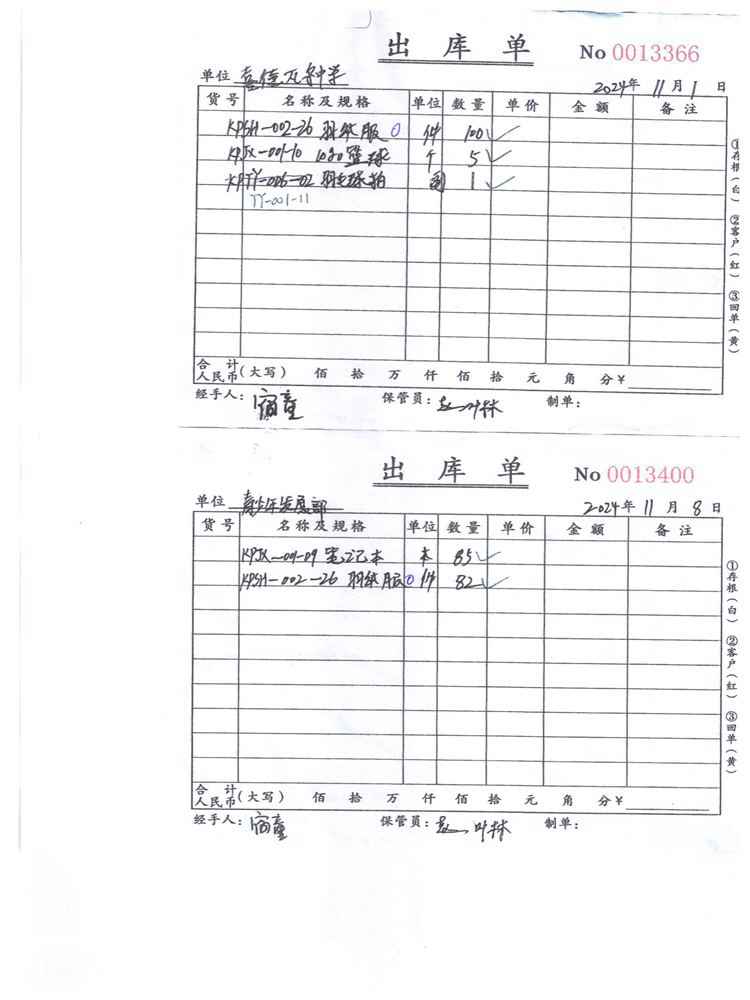 出 库 单
No 0013366
单位 喜德瓦尔中学 2024年 11月 1日
货号 名称及规格 单位 数量 单价 金额 备注
KPSH-002-26 羽绒服 件 100
KPJX-001-10 篮球 个 5
KPTY-006-02 羽毛球拍 副 1
TY-001-11
合计人民币(大写) 佰 拾 万 仟 佰 拾 元 角 分 ¥
经手人: 保管员: 制单:
①存根(白) ②客户(红) ③回单(黄)
出 库 单
No 0013400
单位 青少年发展部 2024年 11月 8日
货号 名称及规格 单位 数量 单价 金额 备注
KPJX-001-09 笔记本 本 85
KPSH-002-26 羽绒服 件 82
合计人民币(大写) 佰 拾 万 仟 佰 拾 元 角 分 ¥
经手人: 保管员: 制单:
①存根(白) ②客户(红) ③回单(黄)